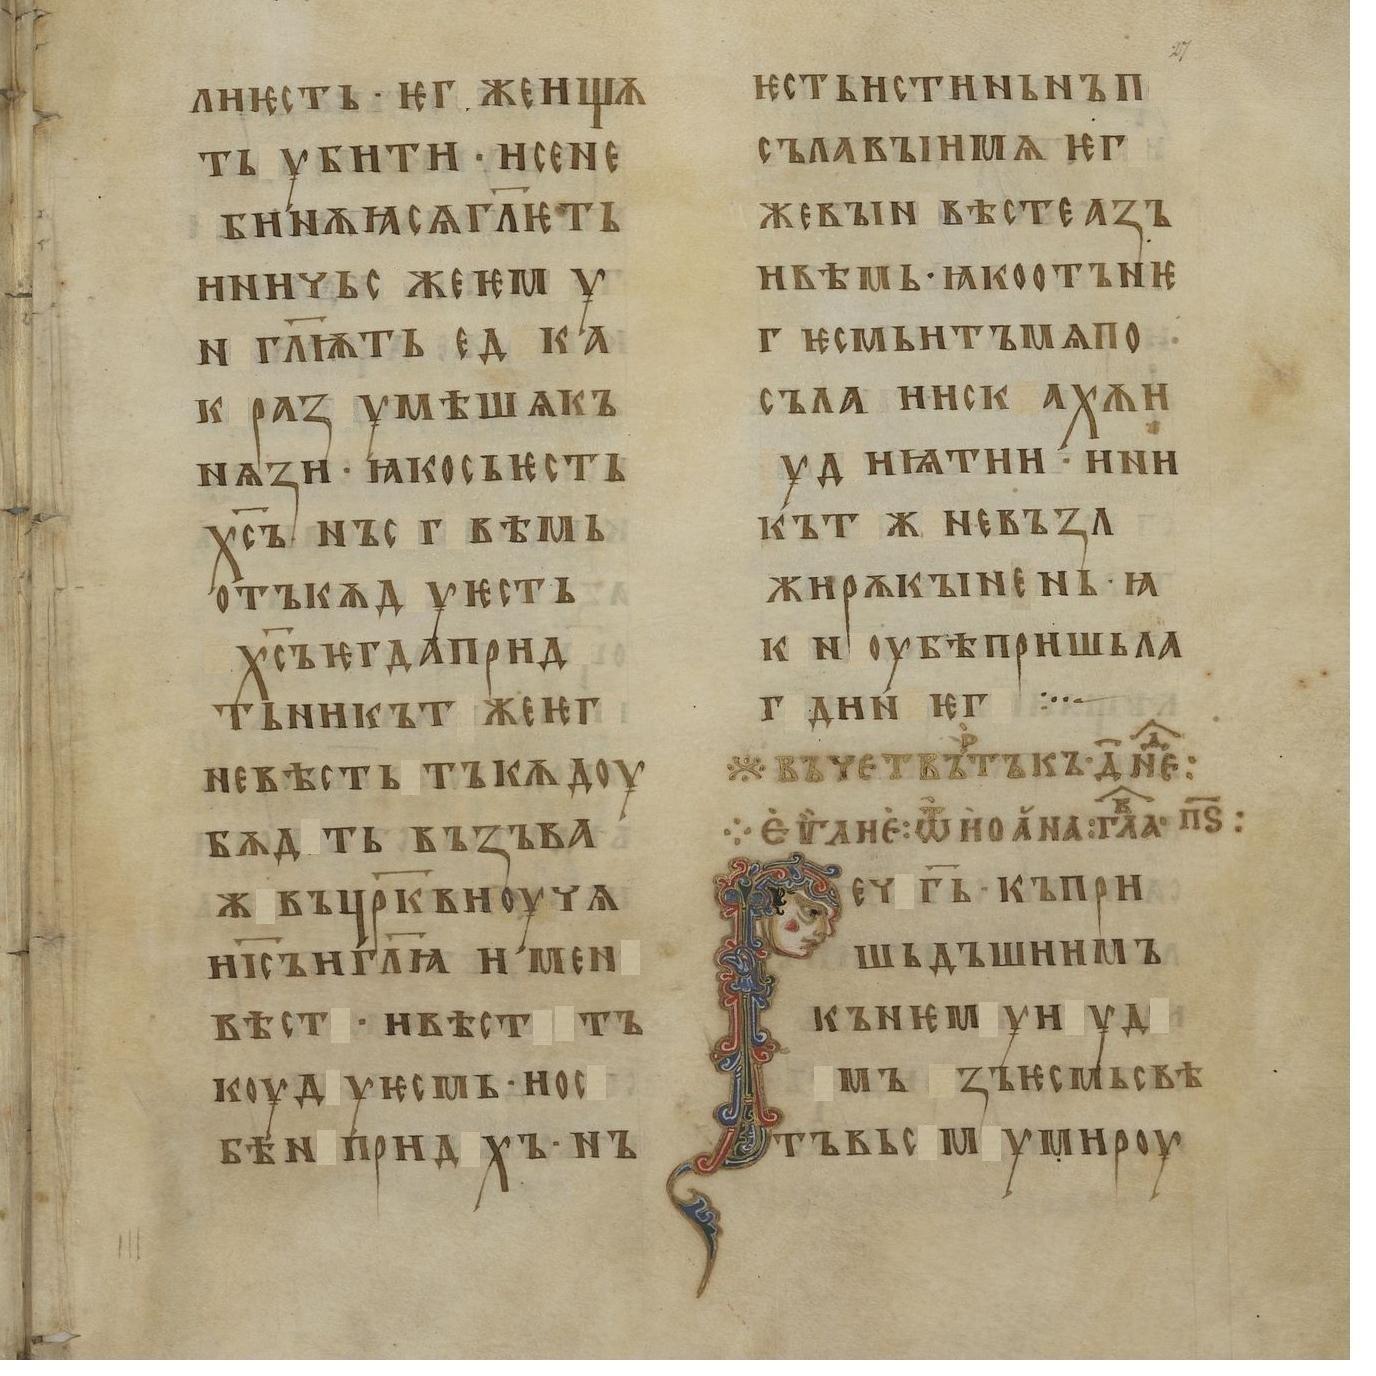 лиѥсть · ѥг жеищѫ
ть убити · исене
бинѫꙗсѧгл҃ѥть
ничьс жеѥм у
н гл҃ѭть ед к а
к раз умѣшѧкъ
нѧзи · ꙗкосьѥсть
х҃съ нъс г вѣмь
отъкѫд уѥсть
х҃съѥгдаприд
тьникът жеѥг
невѣсть тъкѫдоу
бѫд ть възъва
ж въцр҃квиоучѧ
иı҃съигл҃ꙗ и мен
вѣст · ивѣст тъ
коуд уѥсмь · иос
бѣн прид хъ · нъ
ѥстьистиньнъп
сълавъıимѧ ѥг
жевъıн вѣстеазъ
ивѣмь · ꙗкоотънѥ
г ѥсмьитъмѧпо
съла ииск ахѫи
уд иѩтии · ини
кът ж невъзл
жирѫкъıнен ь · ꙗ
к н оубѣпришьла
г дин ѥг
въчетвь́ртъкъ · д҃ нє҃ :
еѵ҃глиѥ : ѿ иоана : гл҃а п҃ѕ :
Реч г҃ь · къпри
шьдъшиимъ
кънѥм уи уд
мъ зъѥсмьсвѣ
тъвьс м умироу